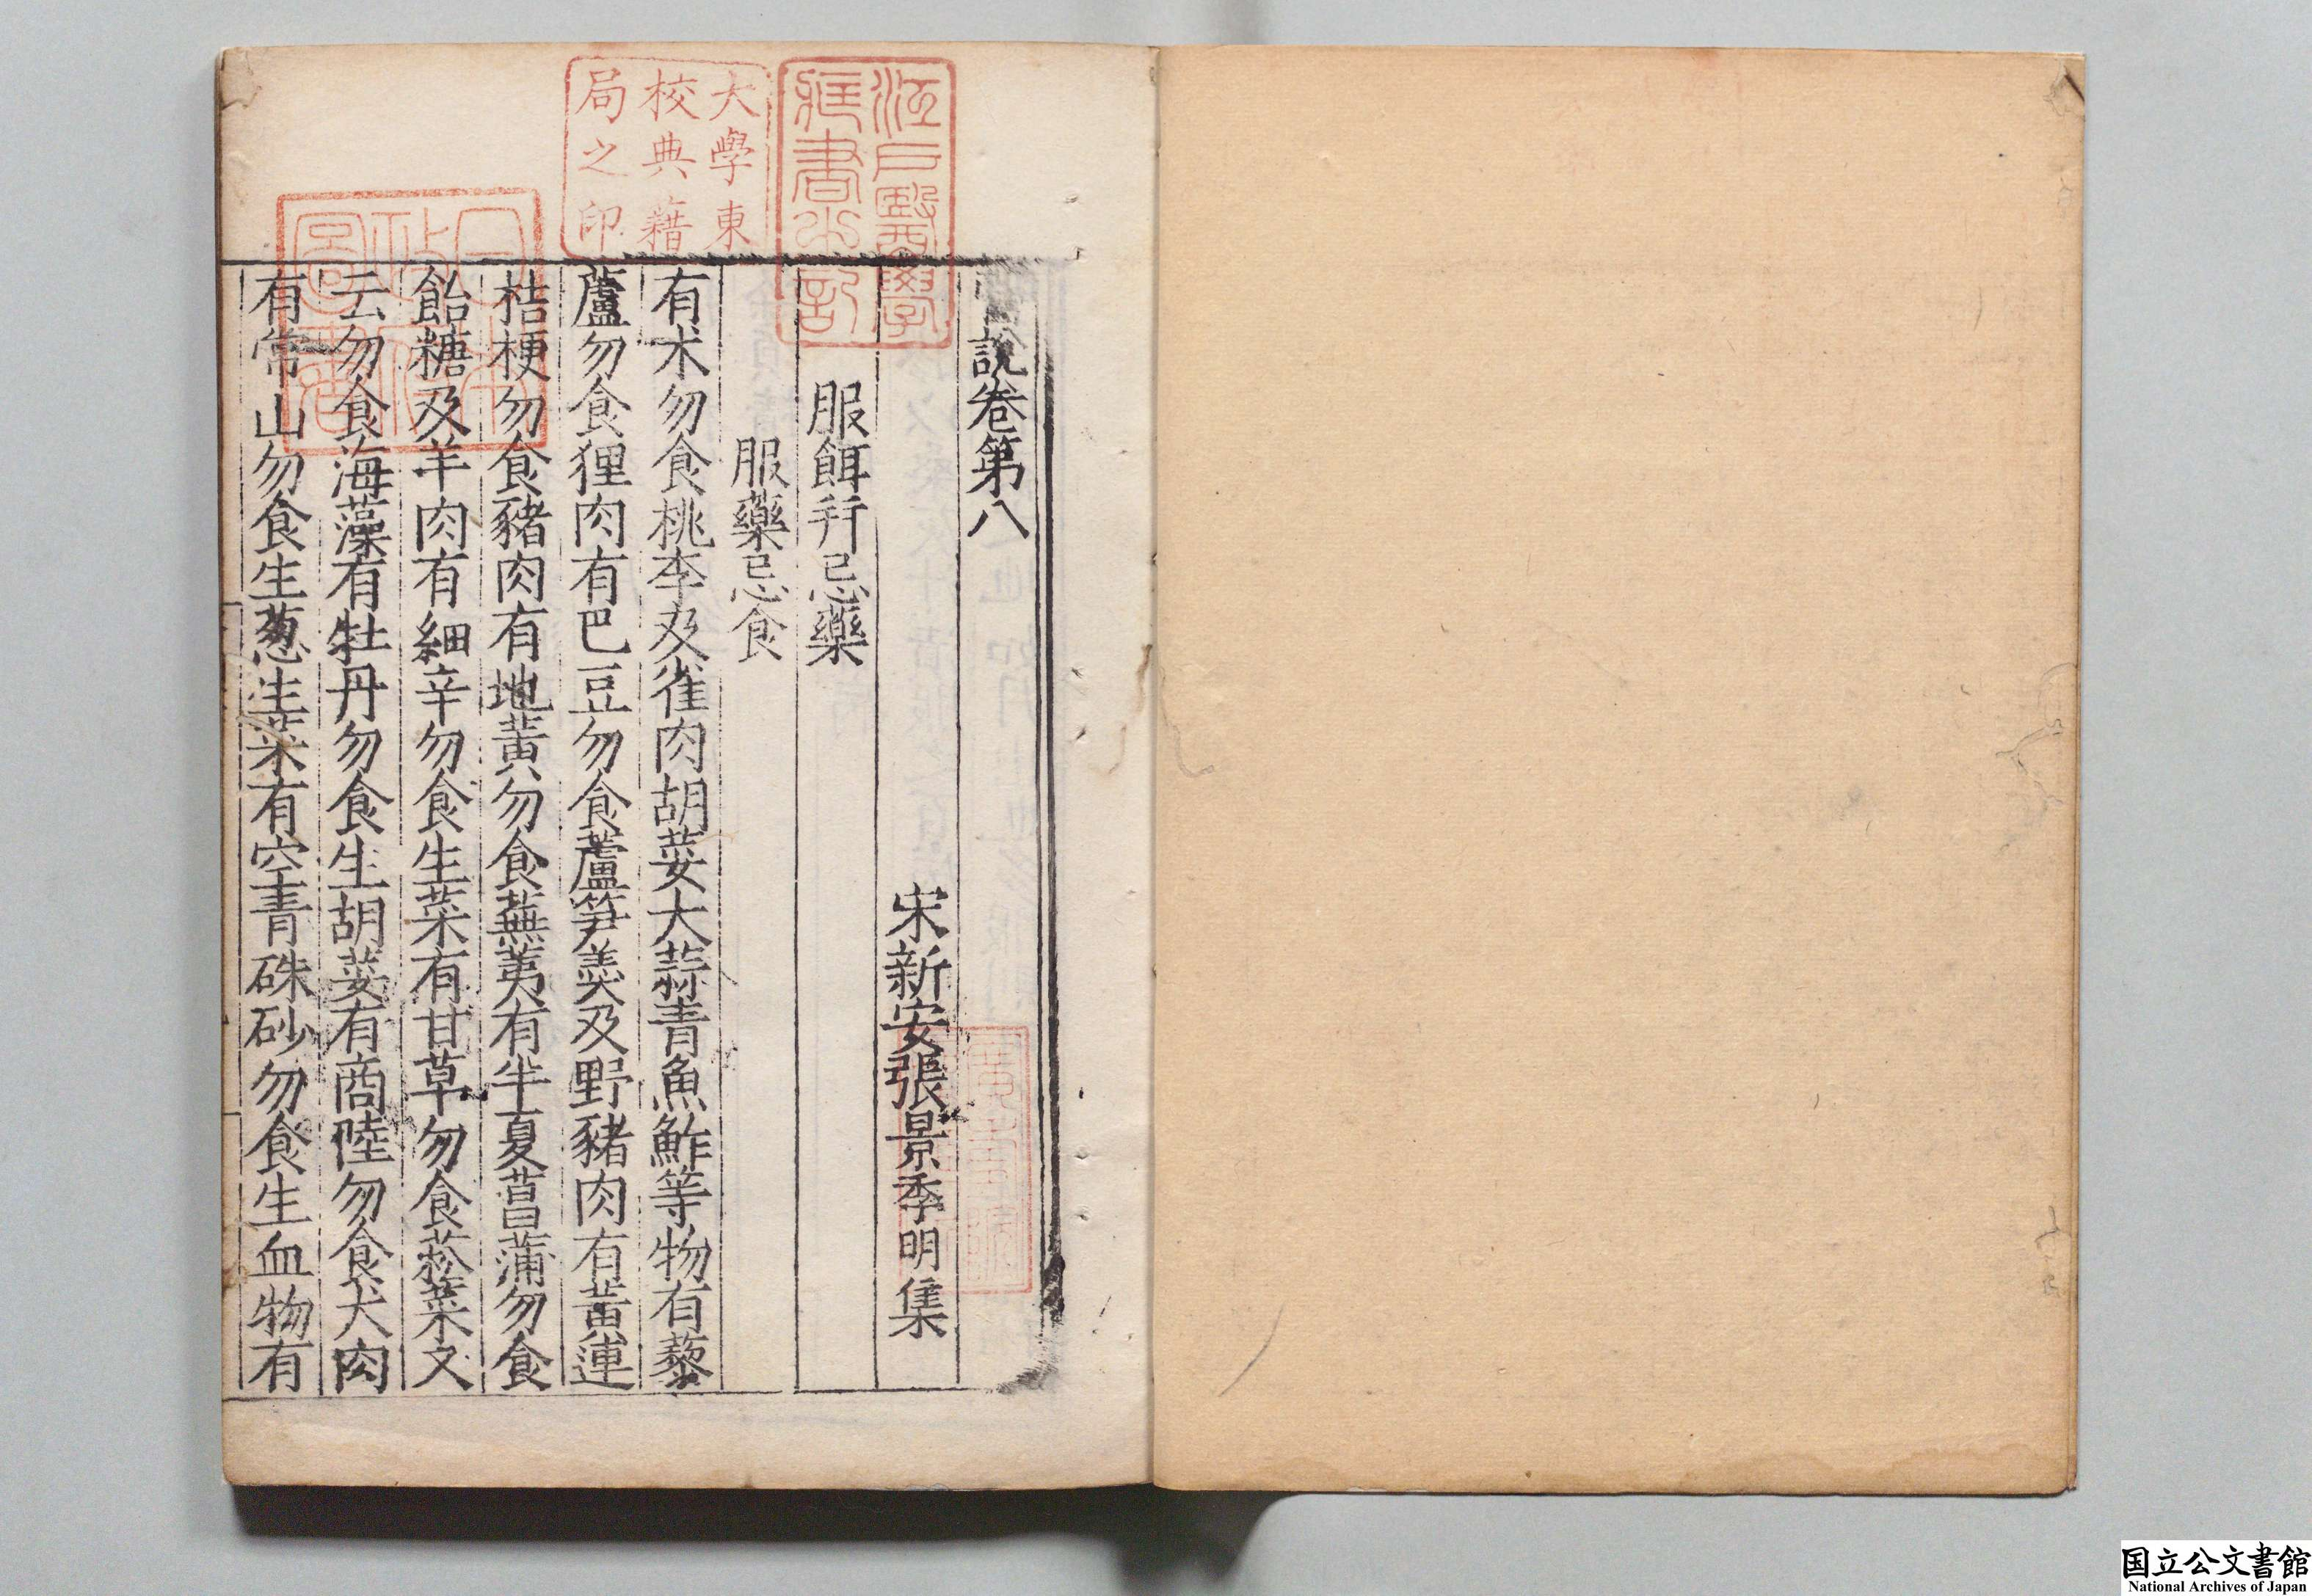 說卷第八
宋新安張景季明集
服餌幷忌藥
服藥忌食
有朮勿食桃李及雀肉胡荽大蒜青魚鮓等物有藜
蘆勿食狸肉有巴豆勿食蘆笋羹及野豬肉有黃連
桔梗勿食豬肉有地黃勿食蕪荑有半夏菖蒲勿食
飴糖及羊肉有細辛勿食生菜有甘草勿食菘菜文
云勿食海藻有牡丹勿食生胡荽有商陸勿食犬肉
有常山勿食生葱生菜有空青硃砂勿食生血物有
江戶醫學
藏書之記
大學東
校典藉
局之印
日本
政府
圖書
国立公文書館
National Archives of Japan